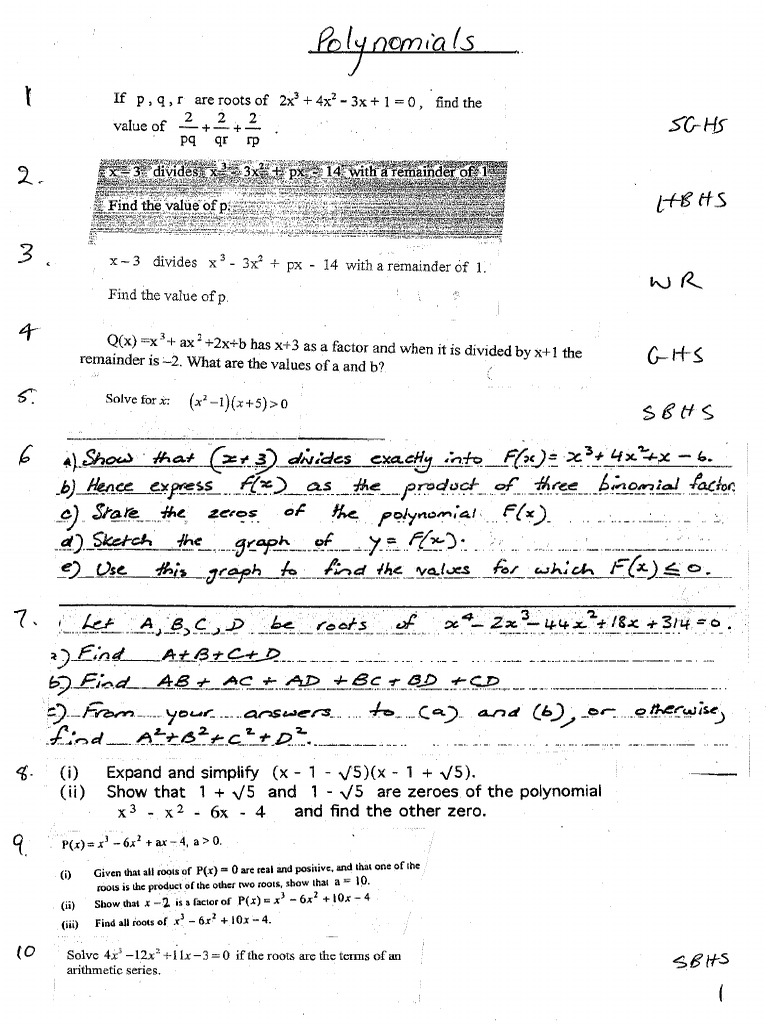 Polynomials
1 If p, q, r are roots of 2x³ + 4x² - 3x + 1 = 0, find the
value of 2/pq + 2/qr + 2/rp .
SGHS
2. x - 3 divides x³ - 3x² + px - 14 with a remainder of 1
Find the value of p.
HBHS
3. x - 3 divides x³ - 3x² + px - 14 with a remainder of 1.
Find the value of p.
WR
4 Q(x) =x³+ ax²+2x+b has x+3 as a factor and when it is divided by x+1 the
remainder is -2. What are the values of a and b?
GHS
5. Solve for x: (x²-1)(x+5)>0
SBHS
6 a) Show that (x+3) divides exactly into F(x) = x³+4x²+x-6.
b) Hence express F(x) as the product of three binomial factor
c) State the zeros of the polynomial F(x)
d) Sketch the graph of y = F(x).
e) Use this graph to find the values for which F(x) ≤ 0.
7. Let A, B, C, D be roots of x⁴-2x³-44x²+18x+314=0.
a) Find A+B+C+D
b) Find AB + AC + AD + BC + BD + CD
c) From your answers to (a) and (b), or otherwise,
find A²+B²+C²+D².
8. (i) Expand and simplify (x - 1 - √5)(x - 1 + √5).
(ii) Show that 1 + √5 and 1 - √5 are zeroes of the polynomial
x³ - x² - 6x - 4 and find the other zero.
9. P(x) = x³ - 6x² + ax - 4, a > 0.
(i) Given that all roots of P(x) = 0 are real and positive, and that one of the
roots is the product of the other two roots, show that a = 10.
(ii) Show that x - 2 is a factor of P(x) = x³ - 6x² + 10x - 4
(iii) Find all roots of x³ - 6x² + 10x - 4.
10 Solve 4x³ -12x² +11x-3 = 0 if the roots are the terms of an
arithmetic series.
SBHS
1